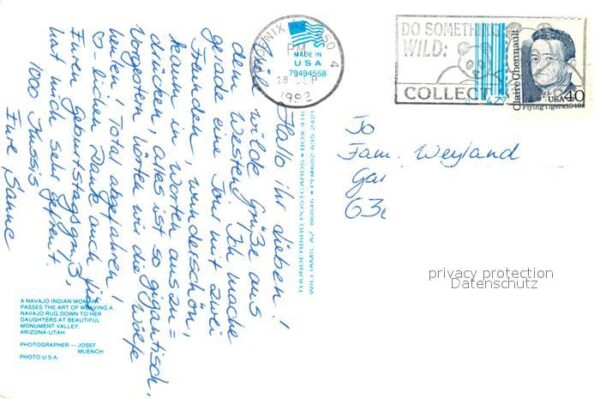 Hallo ihr Lieben!
wilde Grüße aus
dem Westen! Ich mache
gerade eine Tour mit zwei
Freunden, wunderschön,
kaum in Worten auszu=
drücken, alles ist so gigantisch.
Vorgestern hörten wir die Wölfe
heulen. Total abgefahren!
licher Danke auch für
Euren Geburtstagsgruß,
hat mich sehr gefreut.
1000 Bussis
Eure Sanne
A NAVAJO INDIAN WOMAN
PASSES THE ART OF WEAVING A
NAVAJO RUG DOWN TO HER
DAUGHTERS AT BEAUTIFUL
MONUMENT VALLEY,
ARIZONA-UTAH
PHOTOGRAPHER — JOSEF
MUENCH
PHOTO U.S.A.
MADE IN
USA
79494558
THUNDERBIRD POSTCARDS • BOX 416
WILLIAMS AZ 86046 • PH#602 635 2421
PM
1992
DO SOMETHING
WILD:
COLLECT
Claire Chennault
USA 40
Flying Tigers
To
Fam. Weyland
privacy protection
Datenschutz